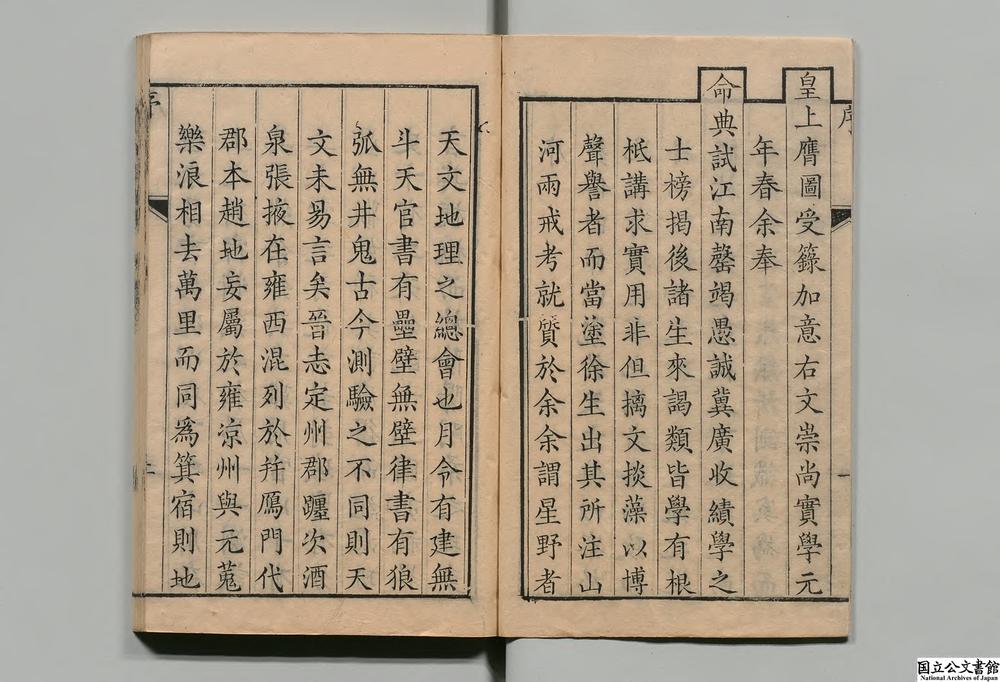 序
皇上膺圖受籙加意右文崇尚實學元
年春余奉
命典試江南罄竭愚誠冀廣收績學之
士榜揭後諸生來謁類皆學有根
柢講求實用非但摛文掞藻以博
聲譽者而當塗徐生出其所注山
河兩戒考就質於余余謂星野者
一
天文地理之總會也月令有建無
斗天官書有壘壁無壁律書有狼
弧無井鬼古今測驗之不同則天
文未易言矣晉志定州郡躔次酒
泉張掖在雍西混列於幷鴈門代
郡本趙地妄屬於雍涼州與元菟
樂浪相去萬里而同爲箕宿則地
序
国立公文書館
National Archives of Japan